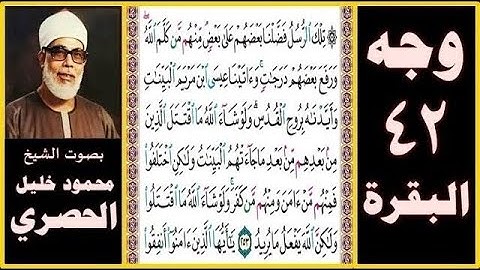 وجه
٤٢
البقرة
تِلْكَ الرُّسُلُ فَضَّلْنَا بَعْضَهُمْ عَلَىٰ بَعْضٍ مِّنْهُم مَّن كَلَّمَ اللَّهُ
وَرَفَعَ بَعْضَهُمْ دَرَجَٰتٍ وَءَاتَيْنَا عِيسَى ابْنَ مَرْيَمَ الْبَيِّنَٰتِ
وَأَيَّدْنَٰهُ بِرُوحِ الْقُدُسِ وَلَوْ شَآءَ اللَّهُ مَا اقْتَتَلَ الَّذِينَ
مِنۢ بَعْدِهِم مِّنۢ بَعْدِ مَا جَآءَتْهُمُ الْبَيِّنَٰتُ وَلَٰكِنِ اخْتَلَفُوا
فَمِنْهُم مَّنْ ءَامَنَ وَمِنْهُم مَّن كَفَرَ وَلَوْ شَآءَ اللَّهُ مَا اقْتَتَلُوا
وَلَٰكِنَّ اللَّهَ يَفْعَلُ مَا يُرِيدُ ٢٥٣ يَٰٓأَيُّهَا الَّذِينَ ءَامَنُوٓا أَنفِقُوا
بصوت الشيخ
محمود خليل
الحصري